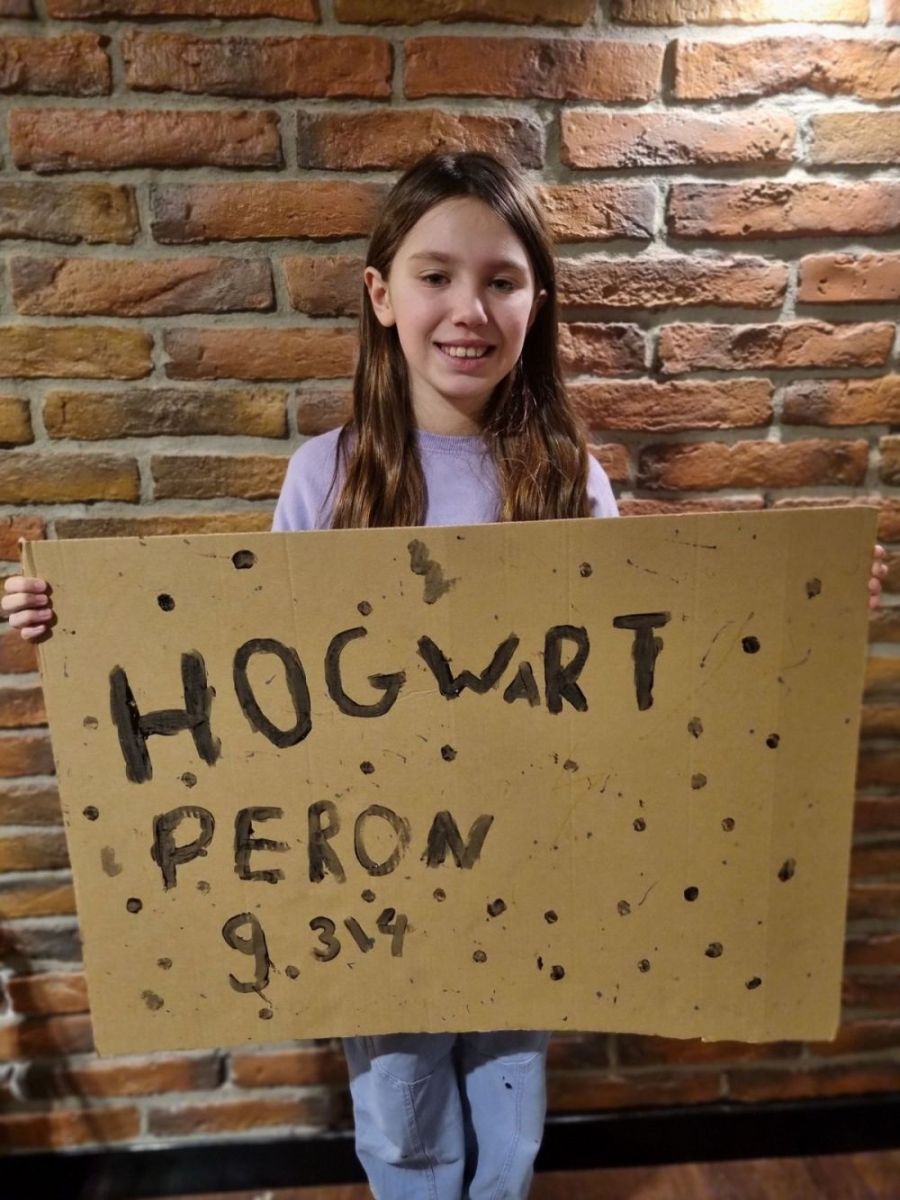 HOGWaRT
PERON
9 3\4